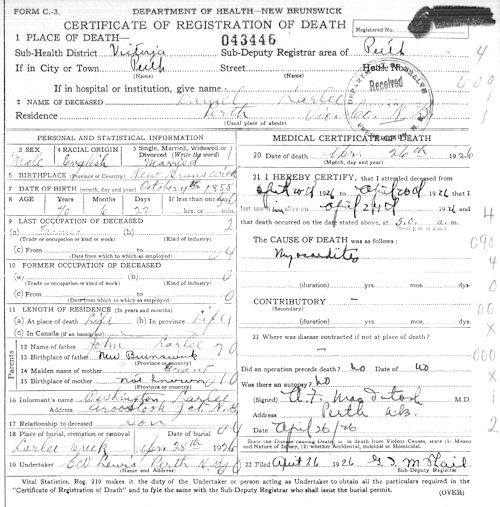 FORM C.-3.
DEPARTMENT OF HEALTH—NEW BRUNSWICK
CERTIFICATE OF REGISTRATION OF DEATH
Registered No.
043446
1 PLACE OF DEATH—
Sub-Health District Victoria Sub-Deputy Registrar area of Perth
If in City or Town Perth Street House No.
(Name) (Name)
If in hospital or institution, give name
2 NAME OF DECEASED Karlee
Residence Perth Vic. Co. N.B.
(Usual place of abode)
DEPARTMENT OF HEALTH
Received
FREDERICTON, N.B.
PERSONAL AND STATISTICAL INFORMATION
3 SEX 4 RACIAL ORIGIN 5 Single, Married, Widowed or Divorced (Write the word)
Male English Married
6 BIRTHPLACE (Province or Country) New Brunswick
7 DATE OF BIRTH (month, day and year) October 4th 1855
8 AGE Years Months Days If less than one day
70 6 22 hrs. or min.
9 LAST OCCUPATION OF DECEASED
(a) Farmer (b)
(Trade or occupation or kind of work) (Kind of industry)
(c) From to
(Date from which to which so employed)
10 FORMER OCCUPATION OF DECEASED
(a) (b)
(Trade or occupation or kind of work) (Kind of industry)
(c) From to
(Date from which to which so employed)
11 LENGTH OF RESIDENCE (In years and months)
(a) At place of death Life (b) In province Life
(c) In Canada (if an immigrant)
Parents
12 Name of father John Karlee
13 Birthplace of father New Brunswick
(Province or country)
14 Maiden name of mother Grant
15 Birthplace of mother Not known
(Province or country)
16 Informant's name Washington Karlee
Address Aroostook Jct. N.B.
17 Relationship to deceased son
18 Place of burial, cremation or removal Date of burial
Karlee Creek Apr. 28th 1926
19 Undertaker Perth N.B.
MEDICAL CERTIFICATE OF DEATH
20 Date of death Apr. 26th 1926
(Month, day and year)
21 I HEREBY CERTIFY, that I attended deceased from
1926 to 1926 that I
last saw alive on 1926 and
that death occurred on the date stated above, at 5.0. a.m.
The CAUSE OF DEATH was as follows:
Myocarditis
(duration) yrs. mos. ds.
CONTRIBUTORY —
(Secondary)
(duration) yrs. mos. ds.
22 Where was disease contracted if not at place of death?
Did an operation precede death? No Date of no
Was there an autopsy? No
(Signed) M.D.
Address Perth N.B.
Date April 26/26
State the Disease causing Death, or in death from Violent Causes, state (1) Means and Nature of Injury, (2) whether Accidental, Suicidal or Homicidal.
23 Filed April 26 1926
Sub-Deputy Registrar
Vital Statistics, Reg. 210 makes it the duty of the Undertaker or person acting as Undertaker to obtain all the particulars required in the
"Certificate of Registration of Death" and to fyle the same with the Sub-Deputy Registrar who shall issue the burial permit.
(OVER)